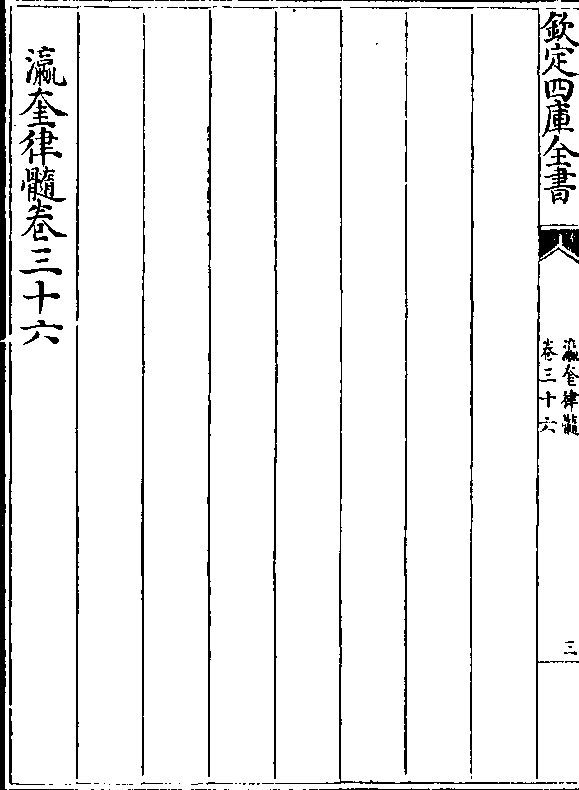 欽定四庫全書
瀛奎律髓
卷三十六
三
瀛奎律髓卷三十六